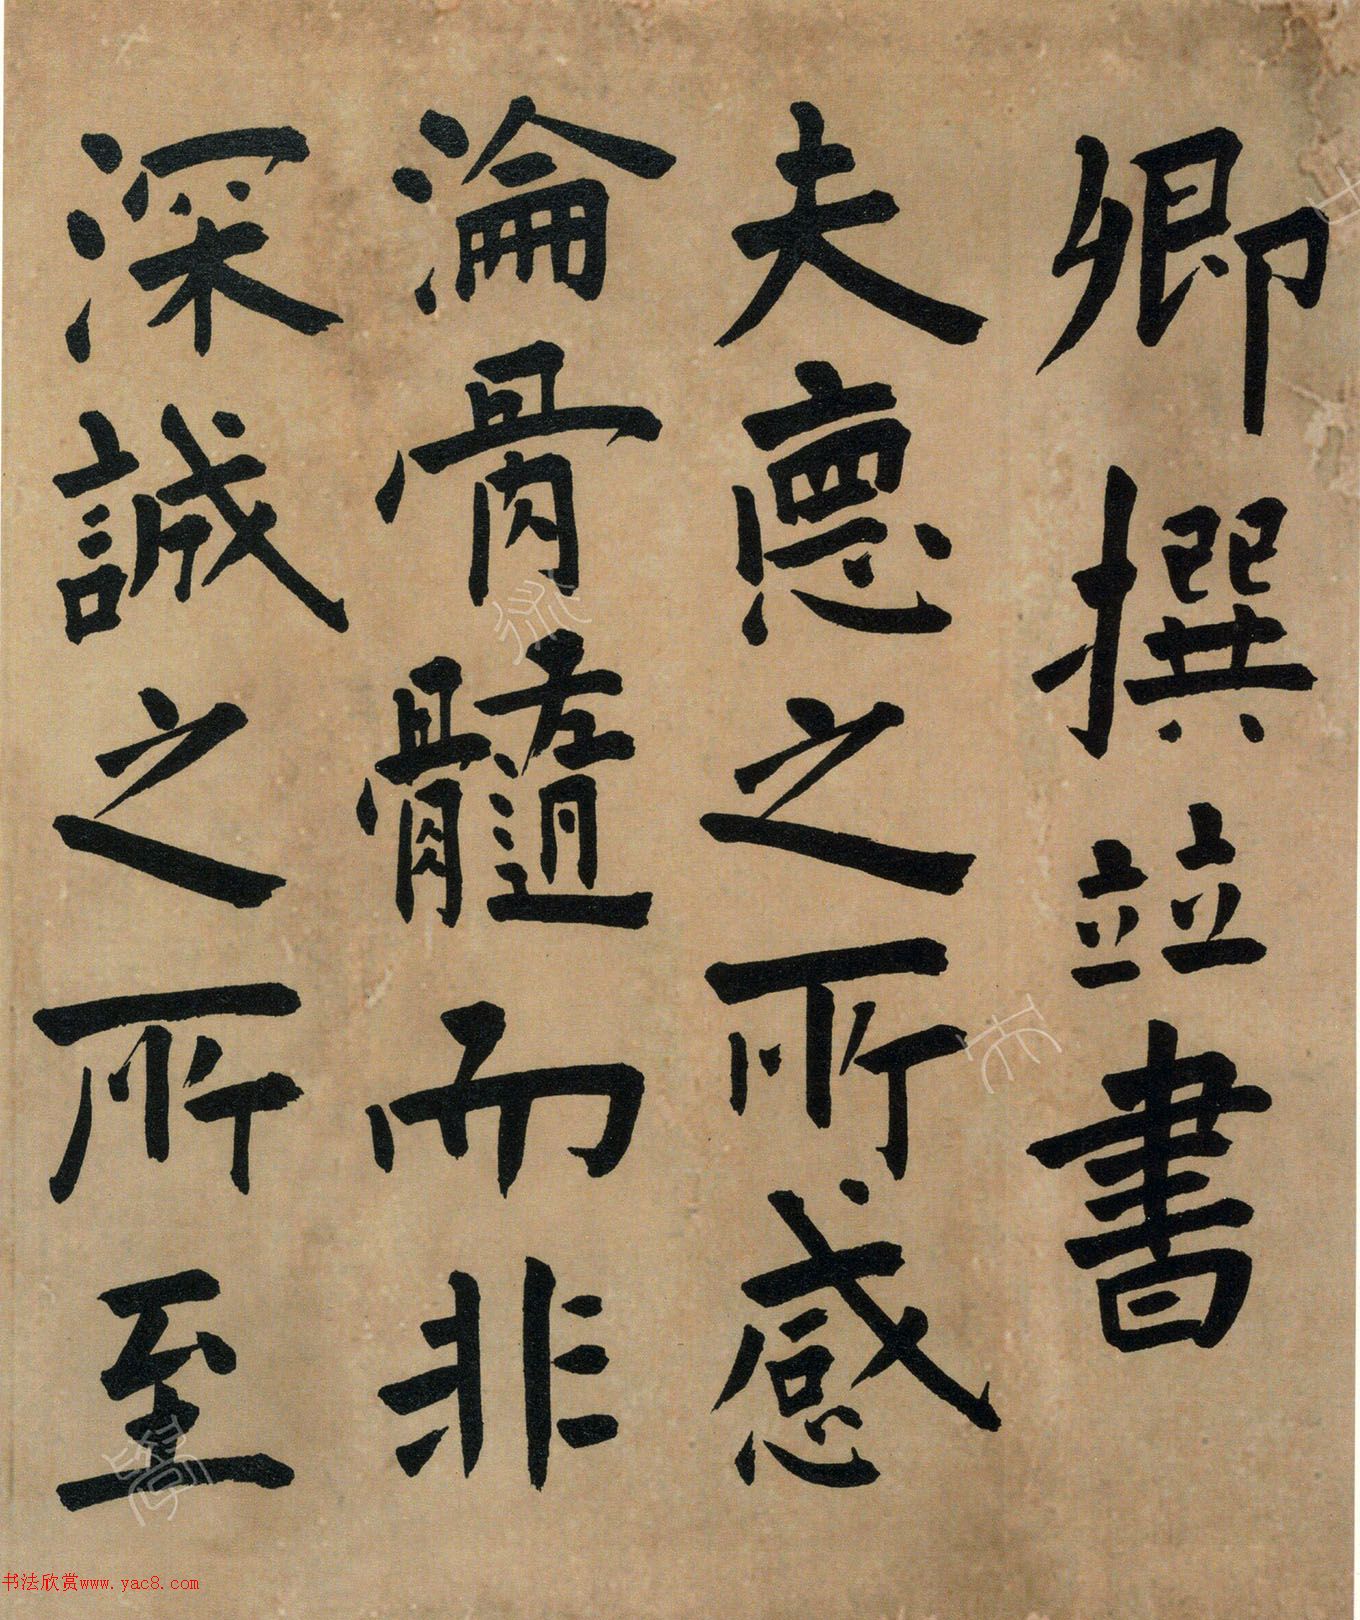 卿撰並書
夫悳之所感
淪骨髓而非
深誠之所至
书法欣赏www.yac8.com